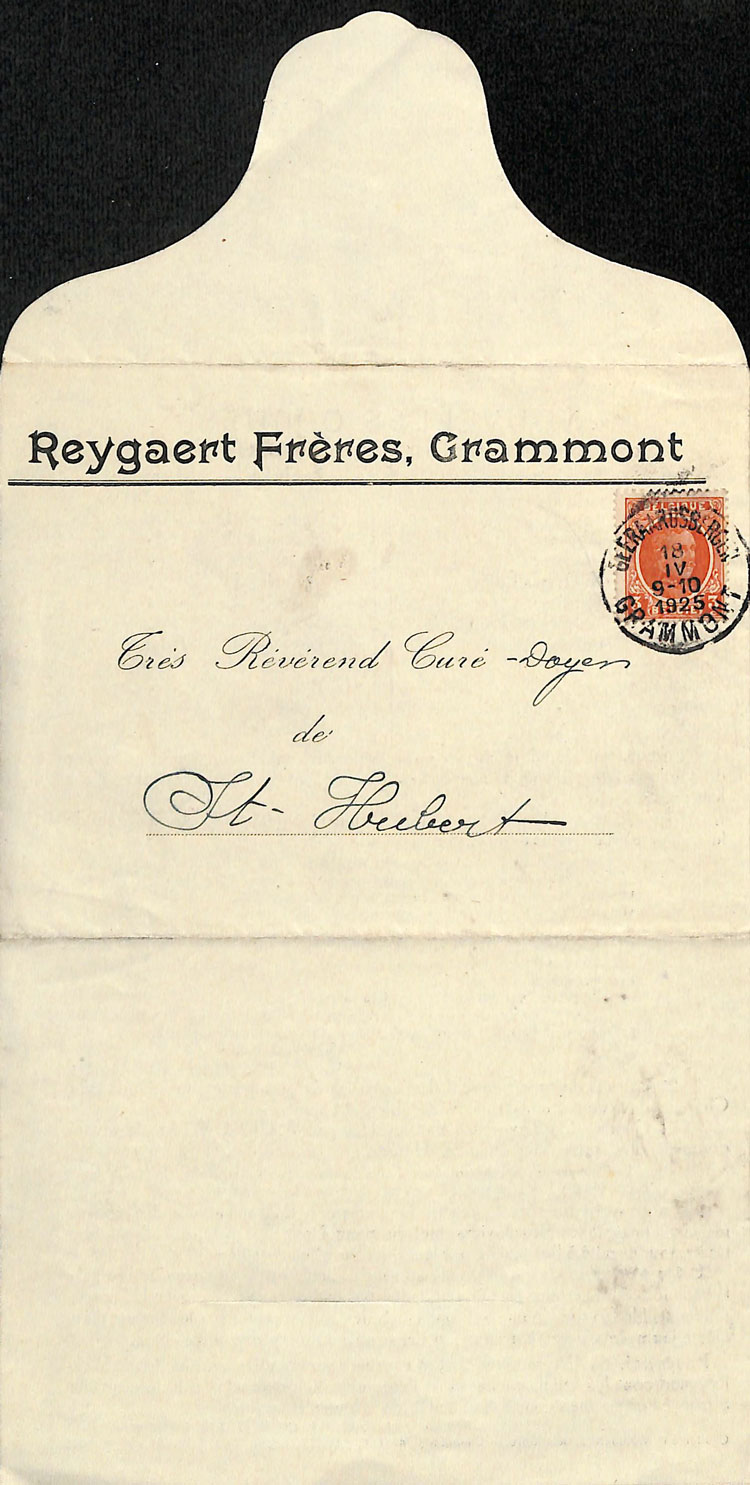 Reygaert Frères, Grammont
BELGIQUE
GEERAARDSBERGEN
18
IV
9-10
1925
GRAMMONT
Très Révérend Curé - Doyen
de
St - Hubert